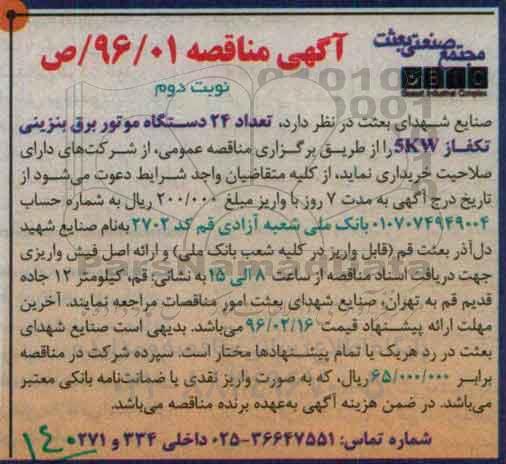 مجتمع صنعتی بعثت
آگهی مناقصه ۹۶/۰۱/ص
نوبت دوم
صنایع شهدای بعثت در نظر دارد، تعداد ۲۴ دستگاه موتور برق بنزینی
تکفاز 5KW را از طریق برگزاری مناقصه عمومی، از شرکت‌های دارای
صلاحیت خریداری نماید، از کلیه متقاضیان واجد شرایط دعوت می‌شود از
تاریخ درج آگهی به مدت ۷ روز با واریز مبلغ ۲۰۰/۰۰۰ ریال به شماره حساب
۰۱۰۷۰۷۴۹۴۹۰۰۴ بانک ملی شعبه آزادی قم کد ۲۷۰۲ به‌نام صنایع شهید
دل‌آذر بعثت قم (قابل واریز در کلیه شعب بانک ملی) و ارائه اصل فیش واریزی
جهت دریافت اسناد مناقصه از ساعت ۸ الی ۱۵ به نشانی: قم، کیلومتر ۱۲ جاده
قدیم قم به تهران، صنایع شهدای بعثت امور مناقصات مراجعه نمایند. آخرین
مهلت ارائه پیشنهاد قیمت ۹۶/۰۲/۱۶ می‌باشد. بدیهی است صنایع شهدای
بعثت در رد هریک یا تمام پیشنهادها مختار است. سپرده شرکت در مناقصه
برابر ۶۵/۰۰۰/۰۰۰ ریال، که به صورت واریز نقدی یا ضمانت‌نامه بانکی معتبر
می‌باشد. در ضمن هزینه آگهی به‌عهده برنده مناقصه می‌باشد.
شماره تماس: ۳۶۶۴۷۵۵۱-۰۲۵ داخلی ۳۳۴ و ۲۷۱
۱۴۰